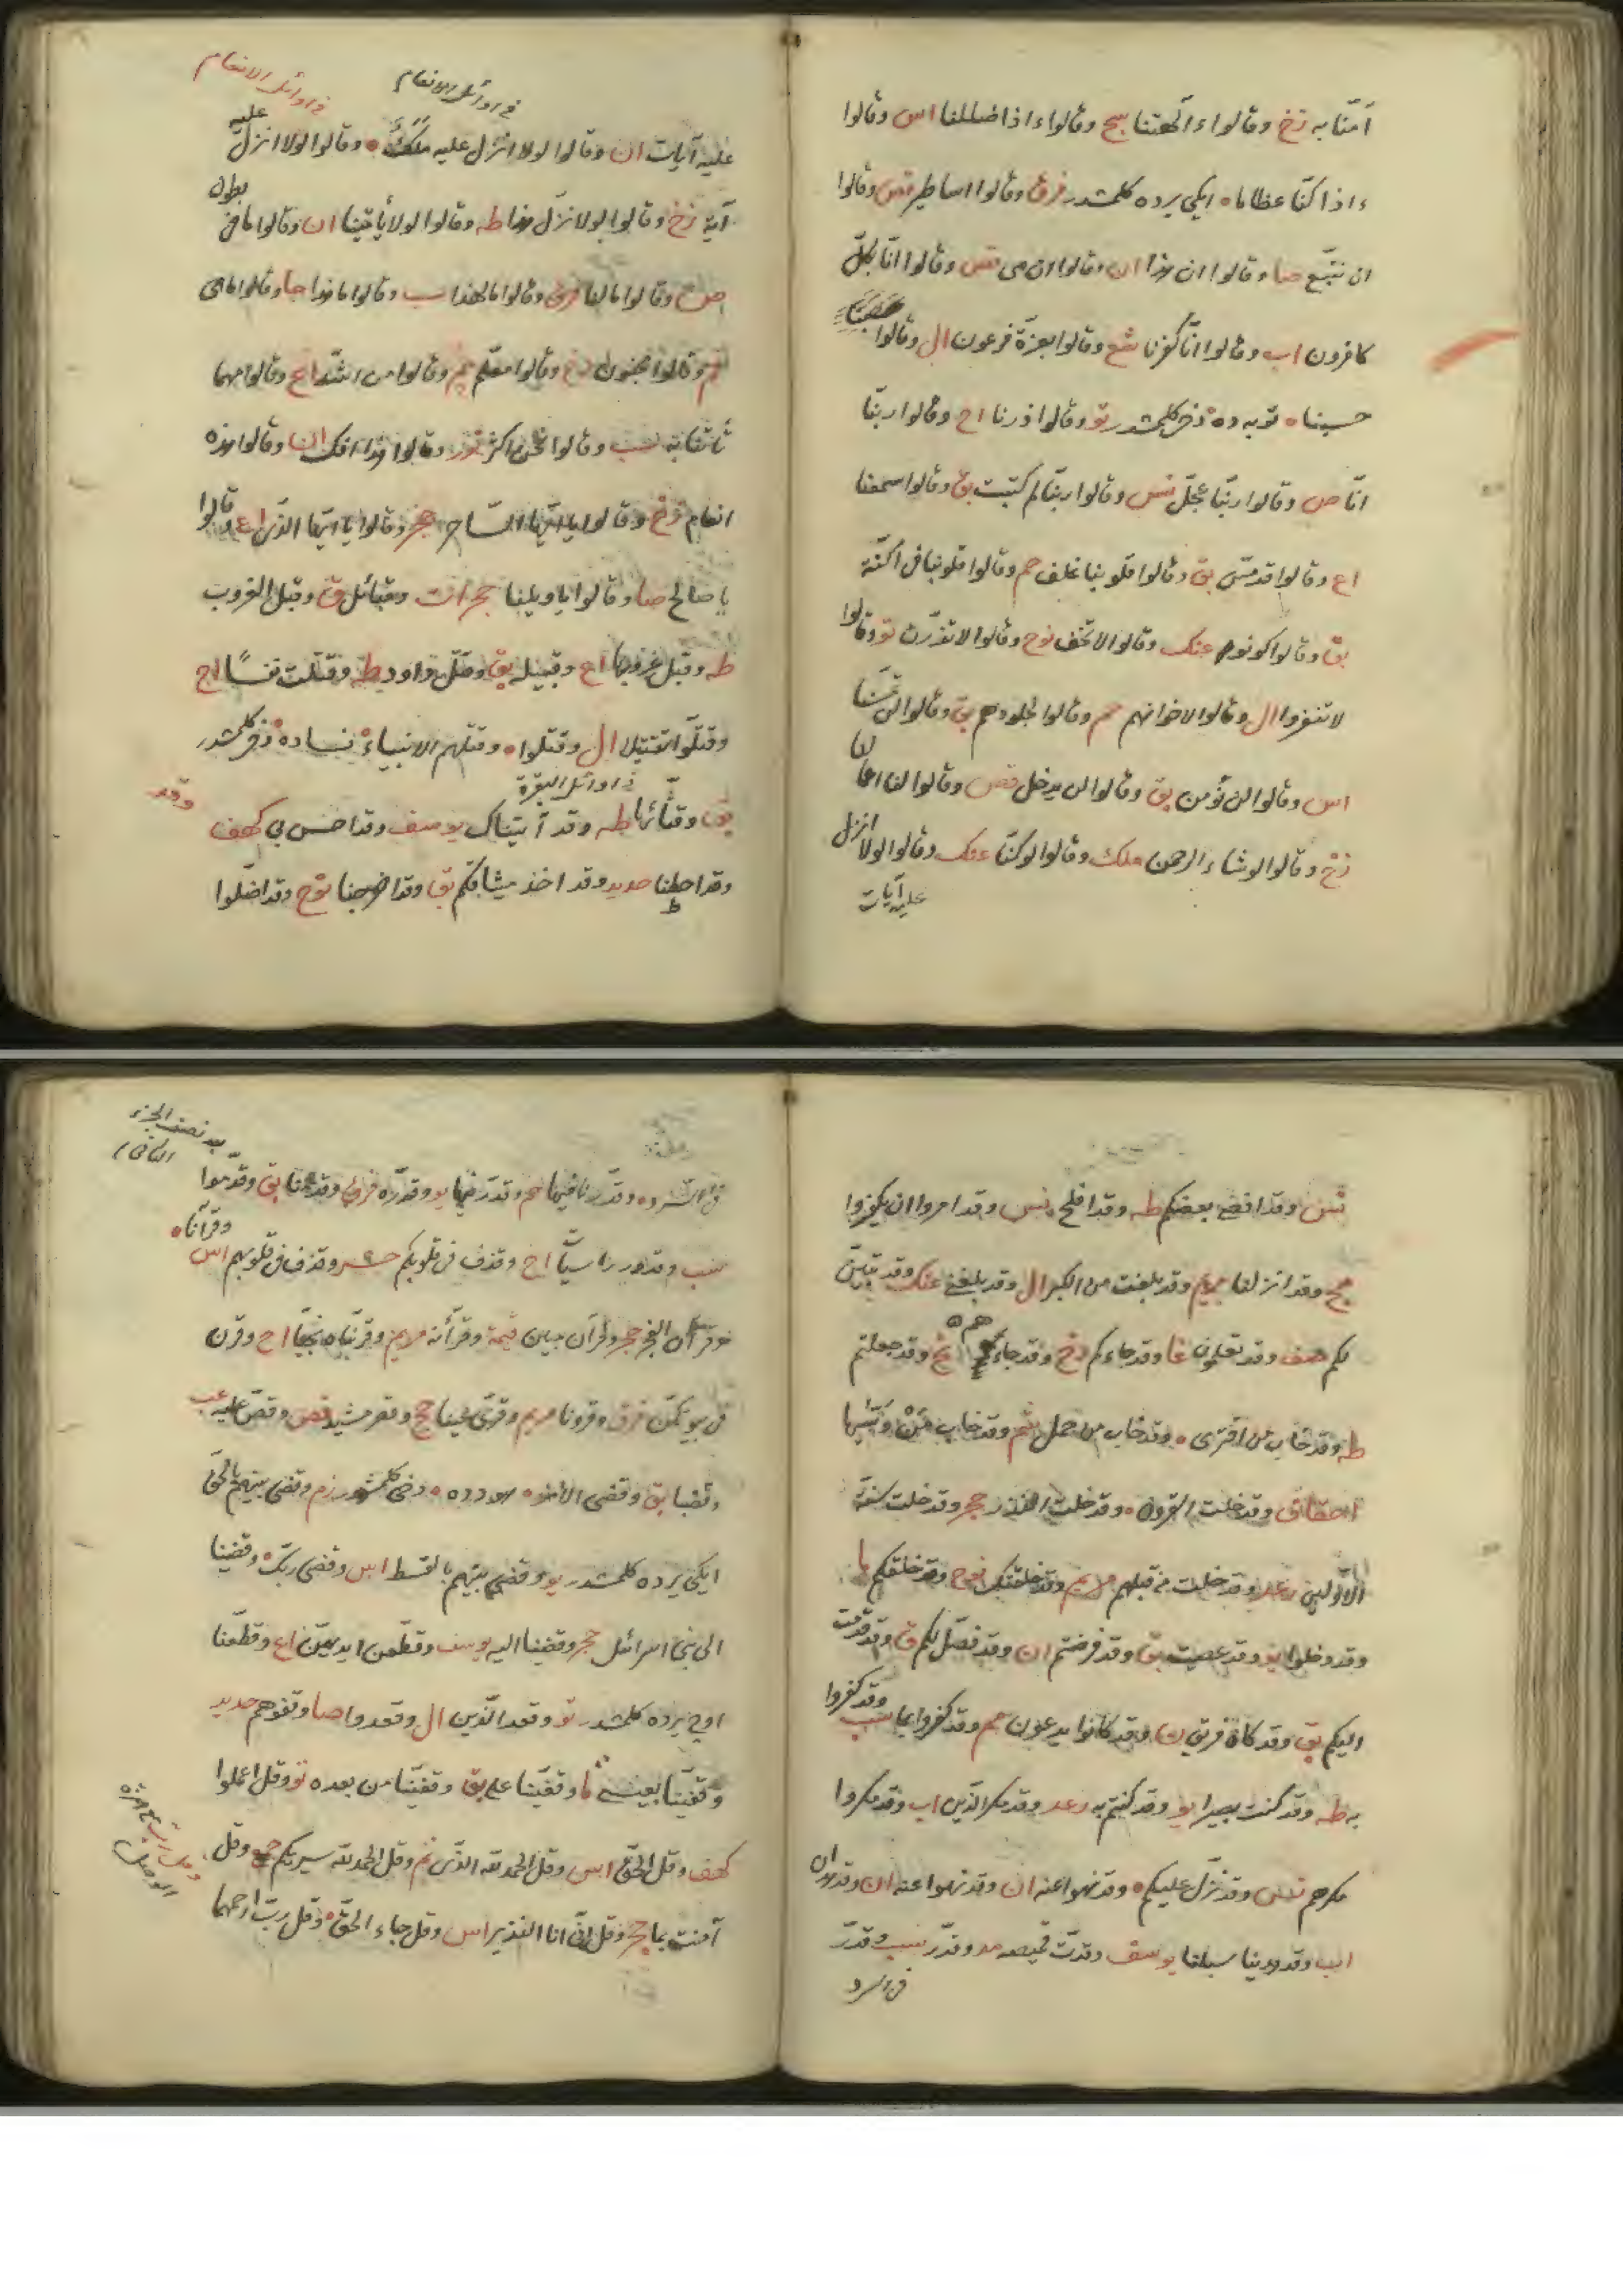 آمنّا به زخ وقالوا ءآلهتنا سج وقالوا ءاذا ضللنا اس وقالوا
ءاذا كنّا عظاما ايكى يرده كلمشدر فرق وقالوا اساطير قص وقالوا
ان نتّبع صا وقالوا ان هذا ان وقالوا ان هى قص وقالوا انّا بكلّ
كافرون اب وقالوا انّا كفرنا شع وقالوا بعزّة فرعون ال وقالوا
حسبنا توبه ده دخى كلمشدر تو وقالوا ذرنا اح وقالوا ربّنا
انّا ص وقالوا ربّنا عجّل نس وقالوا ربّنا لم كتبت بق وقالوا سمعنا
اع وقالوا قد مسّ بق وقالوا قلوبنا غلف حم وقالوا قلوبنا فى اكنّة
بق وقالوا كونوا عنك وقالوا لا تخف نوح وقالوا لا تذرّن تو وقالوا
لا تنفروا ال وقالوا لاخوانهم حم وقالوا لجلودهم بق وقالوا لن تمسّنا
اس وقالوا لن نؤمن بق وقالوا لن يدخل قص وقالوا لنا اعمالنا
زخ وقالوا لو شاء الرحمن ملك وقالوا لو كنّا عنك وقالوا لولا انزل
عليه آيات
فى اوائل الانعام
فى اوائل الانعام
عليه آيات ان وقالوا لولا انزل عليه ملك وقالوا لولا انزل عليه
آية زخ وقالوا لولا نزّل هذا طه وقالوا لولا يأتينا ان وقالوا ما فى بطون
ص وقالوا ما لنا فرق وقالوا ما لهذا سب وقالوا ما هذا جا وقالوا ما هى
قم وقالوا مجنون دخ وقالوا معلّم حم وقالوا من اشدّ اع وقالوا مهما
تأتنا به سب وقالوا نحن اكثر نور وقالوا هذا افك ان وقالوا هذه
انعام زخ وقالوا يا ايّها السّاحر حجر وقالوا يا ايّها الّذى اع وقالوا
يا صالح صا وقالوا يا ويلنا حجرات وقبائل ق وقبل الغروب
طه وقبل غروبها اع وقبيله بق وقتل داود طه وقتلت نفسًا اح
وقتّلوا تقتيلا ال وقتلوا وقتلهم الانبياء نساده دخى كلمشدر
فى اوائل البقرة
بق وقثّائها طه وقد آتيناك يوسف وقد احسن بى كهف وقد
وقد احطنا حديد وقد اخذ ميثاقكم بق وقد اخرجنا نوح وقد اضلّوا
نس وقد افضى بعضكم طه وقد افلح نس وقد امروا ان يكفروا
مج وقد انزلنا مريم وقد بلغت من الكبر ال وقد بلغنى عنك وقد تبيّن
لكم صف وقد تعلمون غا وقد جاءكم دخ وقد جاءهم نح وقد جعلتم
طه وقد خاب من افترى وقد خاب من حمل شم وقد خاب من دسّيها
احقاق وقد خلت القرون وقد خلت النذر حجر وقد خلت سنّة
الاوّلين رعد وقد خلت من قبلهم مريم وقد خلقتك نوح وقد خلقكم ما
وقد دخلوا يو وقد عصيت بق وقد فرضتم ان وقد فصّل لكم ق وقد قدّمت
اليكم بق وقد كان فريق ن وقد كانوا يدعون مم وقد كفروا بما سب وقد كفروا
به طه وقد كنت بصيرا يو وقد كنتم به رعد وقد مكر الّذين اب وقد مكروا
مكرهم نس وقد نزّل عليكم وقد نهوا عنه ان وقد نهوا عنه ان وقد هدان
اب وقد هدينا سبلنا يوسف وقدّت قميصه مد وقدّر سب وقدّر
فى السرد
بعد نصف الجزء
الثانى
فى السّرد وقدّرنا فيها حم وقدّر فيها يو وقدّره فرق وقدمنا بق وقدّموا
سب وقدور راسيات اح وقذف فى قلوبكم حشر وقذف فى قلوبهم اس وقرآنا
وقرآن الفجر حجر وقرآن مبين قيمة وقرآنه مريم وقرّبناه نجيّا اح وقرن
فى بيوتكنّ فرق وقرونا مريم وقرّى عينا حج وقصر مشيد قص وقصّ عليه عب
وقضبا بق وقضى الامر هود ده دخى كلمشدر زم وقضى بينهم بالحقّ
ايكى يرده كلمشدر يو وقضى بينهم بالقسط اس وقضى ربّك وقضينا
الى بنى اسرائل حجر وقضينا اليه يوسف وقطّعن ايديهنّ اع وقطّعنا
اوچ يرده كلمشدر تو وقعد الّذين ال وقعدوا صا وقفوهم حديد
وقفّينا بعيسى ما وقفّينا على بق وقفّينا من بعده تو وقل اعملوا
كهف وقل الحقّ اس وقل الحمد لله الّذى نم وقل الحمد لله سيريكم حج وقل
آمنت بما حجر وقل انّى انا النذير اس وقل جاء الحقّ وقل ربّ ارحمهما